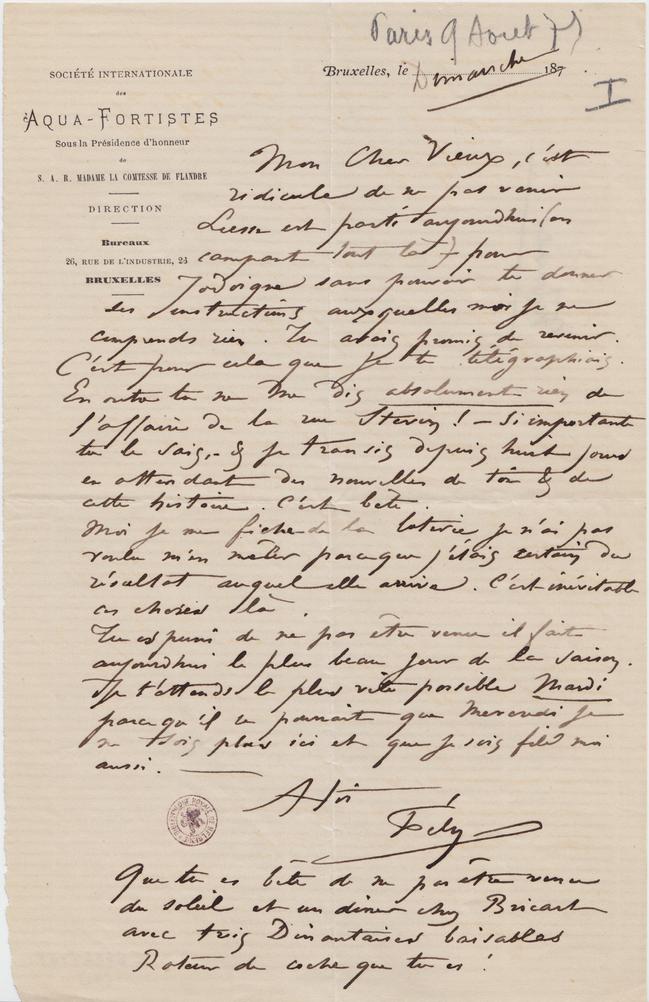 Paris 9 Aout 75
I
SOCIÉTÉ INTERNATIONALE
des
AQUA-FORTISTES
Sous la Présidence d'honneur
de
S. A. R. MADAME LA COMTESSE DE FLANDRE
DIRECTION
Bureaux
26, RUE DE L'INDUSTRIE, 23
BRUXELLES
Bruxelles, le Dimanche 187
Mon Cher Vieux, c'est
ridicule de ne pas venir
est parti aujourdhui (en
campant tout là) pour
Jodoigne sans pouvoir te donner
des instructions auxquelles moi je ne
comprends rien. Tu avais promis de revenir.
C'est pour cela que je te télégraphiais.
En outre tu ne me dis absolument rien de
l'affaire de la rue Stevin! – Si importante
tu le sais, – & je transis depuis huit jours
en attendant des nouvelles de toi & de
cette histoire. C'est bête.
Moi je me fiche de la loterie je n'ai pas
voulu m'en mêler parceque j'étais certain du
résultat auquel elle arrive. C'est inévitable
ces choses là.
Tu es puni de ne pas être venu il fait
aujourdhui le plus beau jour de la saison.
Je t'attends le plus vite possible Mardi
parcequ'il se pourrait que Mercredi je
ne sois plus ici et que je sois filé moi
aussi.
A toi
Fély
BIBLIOTHÈQUE ROYALE DE BELGIQUE
Que tu es bête de ne pas être venu
du soleil et un dîner chez Bricart
avec trois Dinantaises baisables
de coche que tu es!